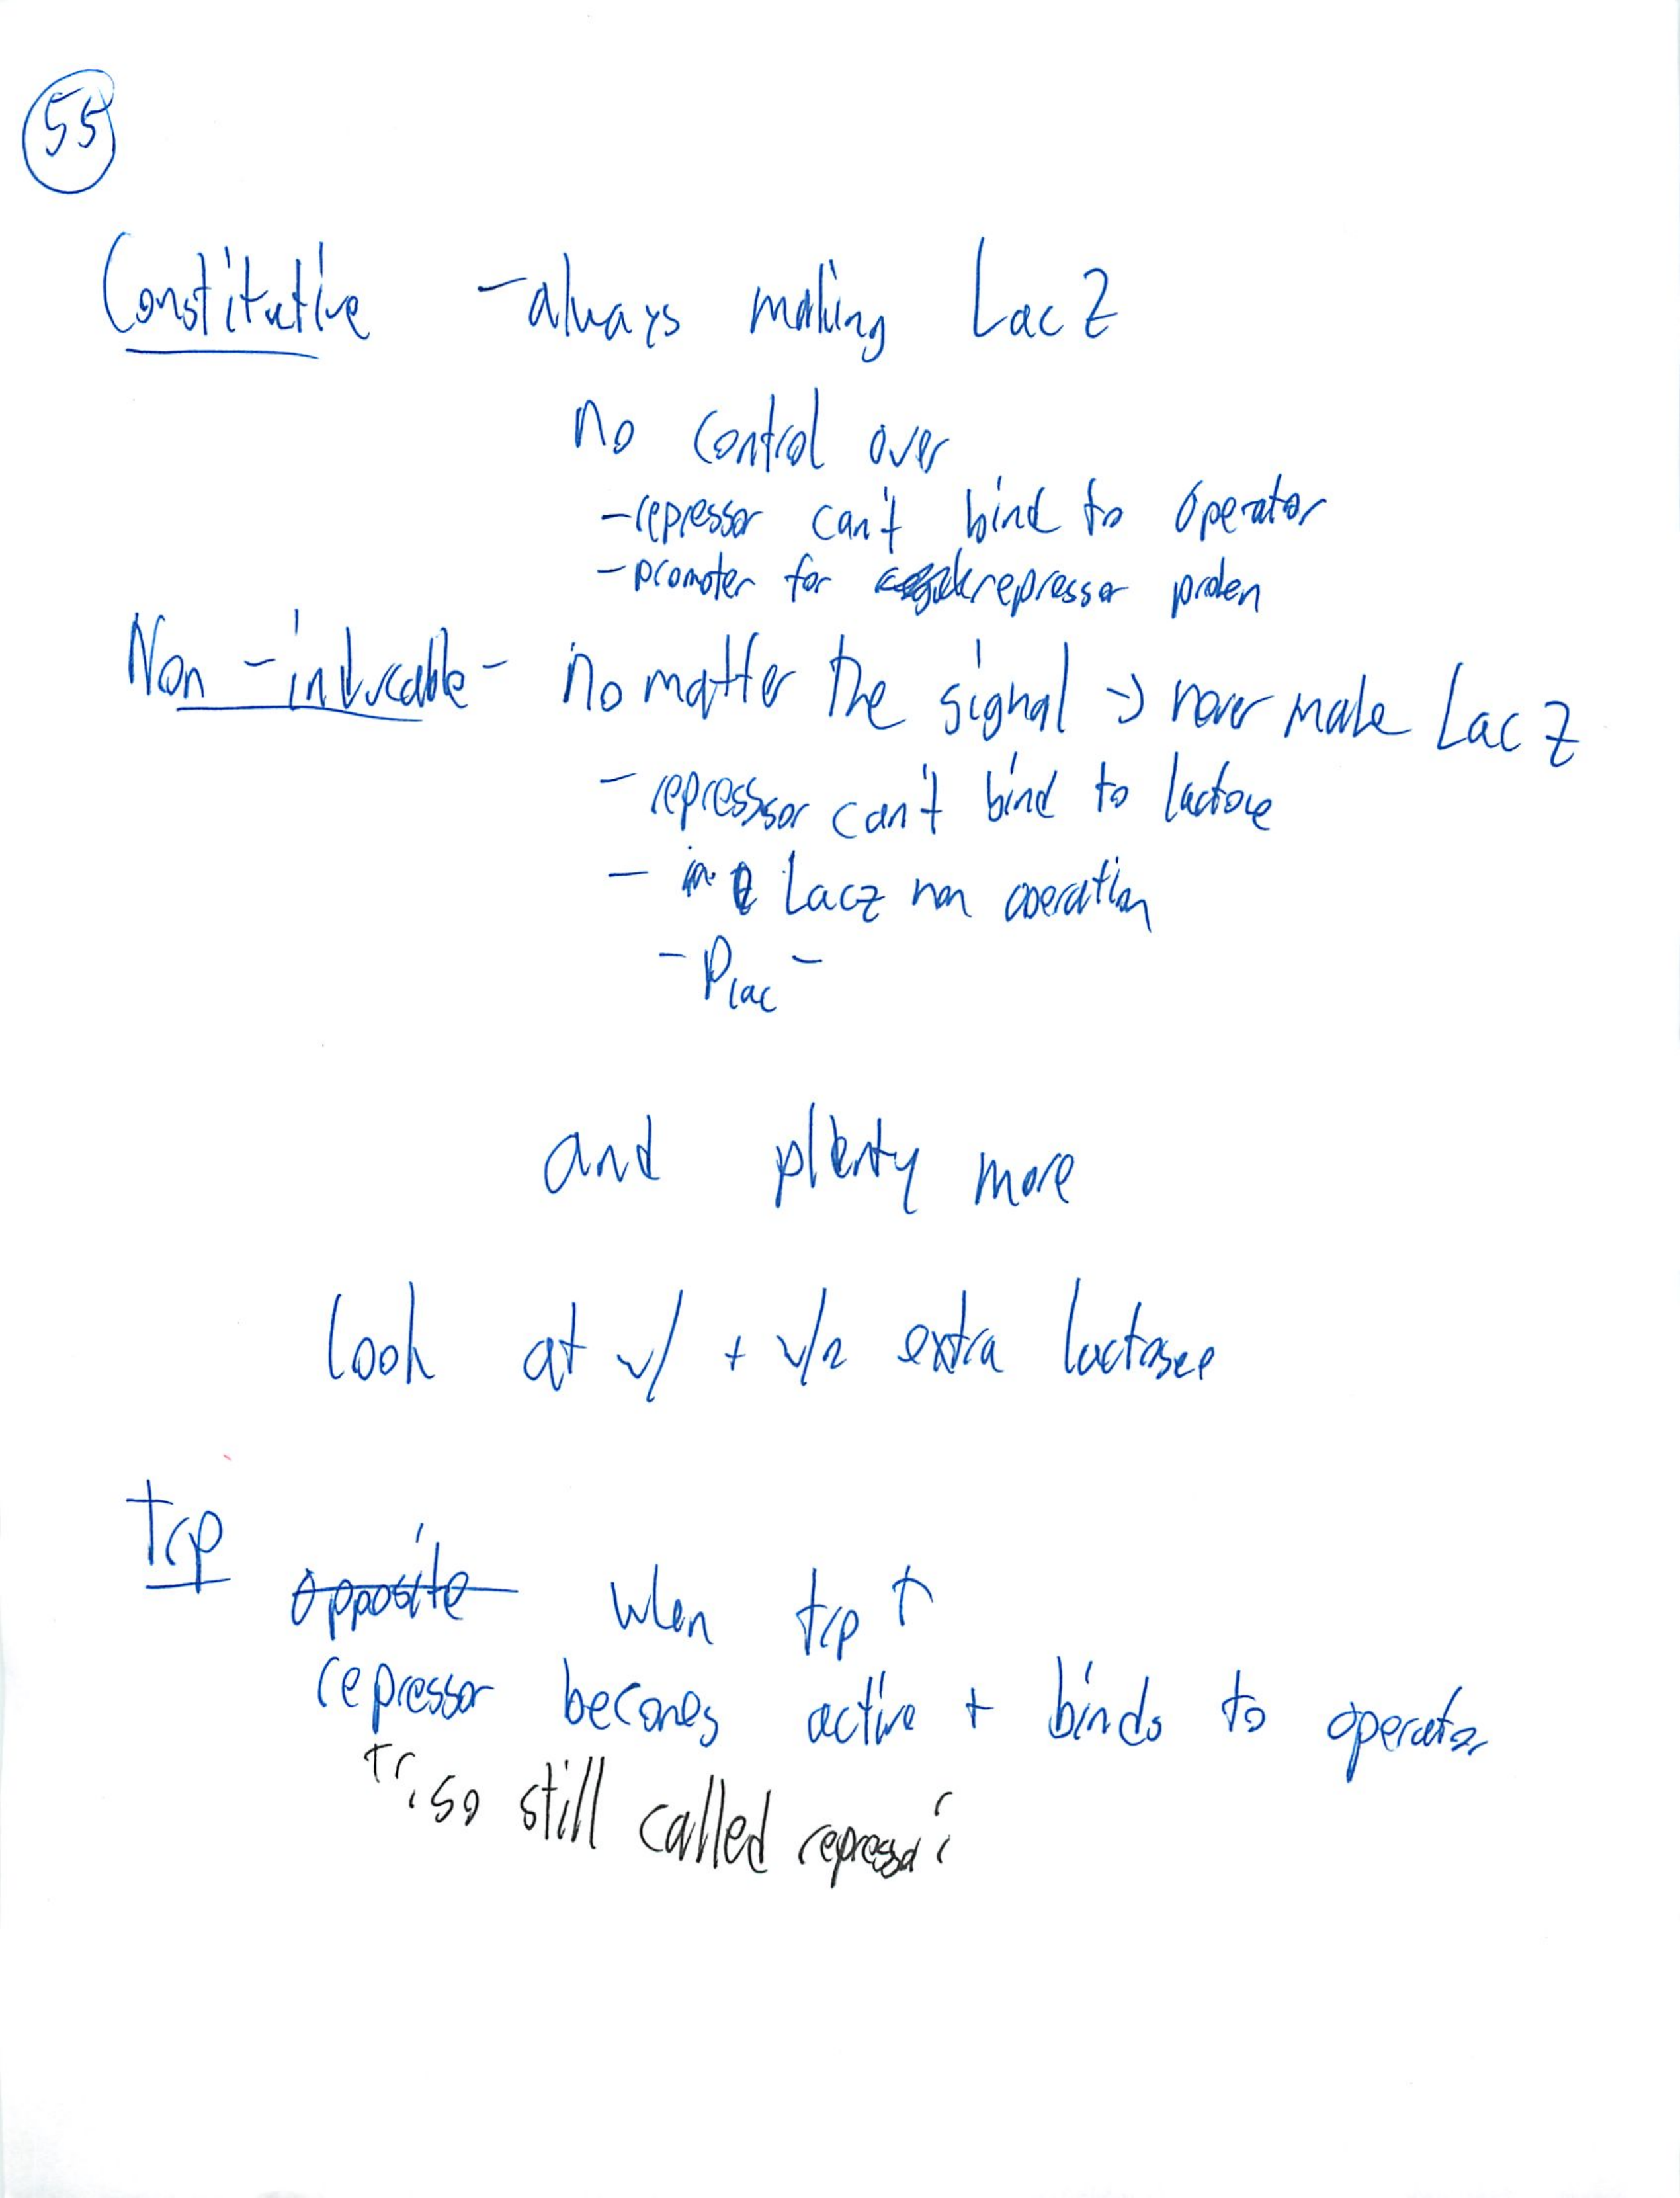 55
Constitutive - always making Lac Z
no control over
- repressor can't bind to operator
- promoter for repressor proten
Non-inducable - no matter the signal → never make Lac Z
- represssor can't bind to lactose
- Lac z non operation
- Plac -
and plenty more
look at w/ + w/o extra lactose
trp
opposite when trp ↑
repressor becomes active + binds to operator
so still called repressor